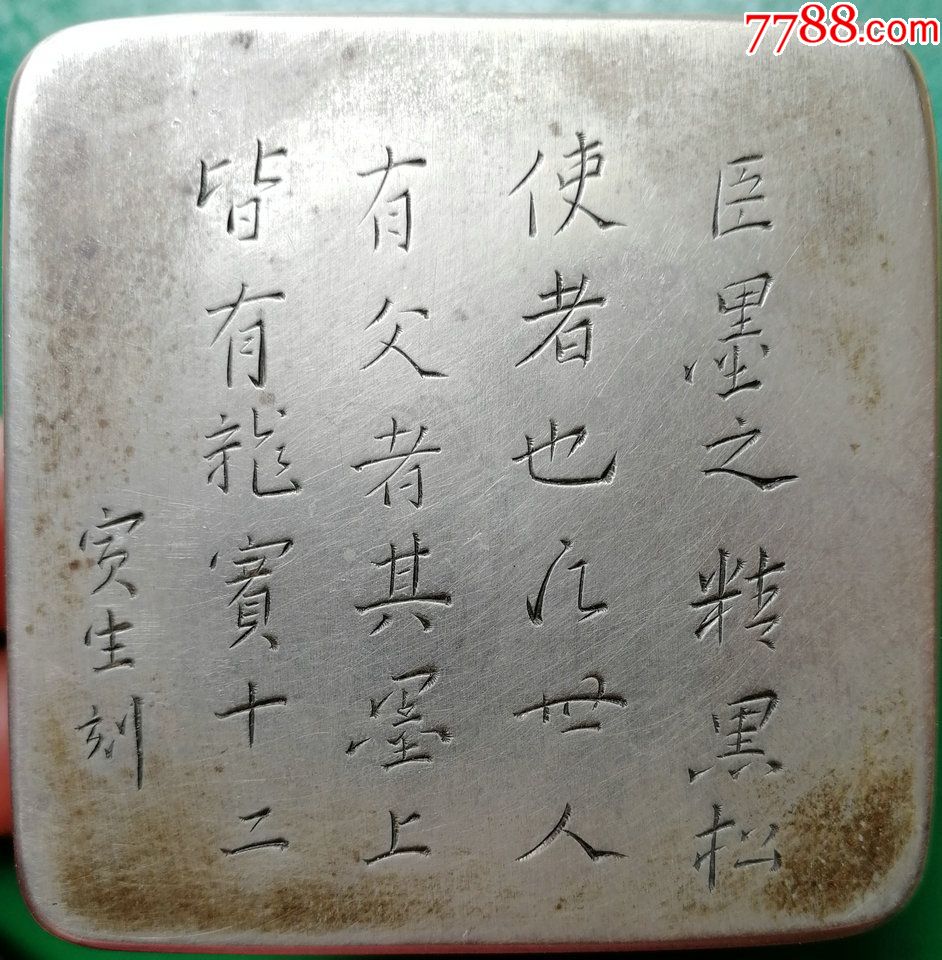 臣墨之精黑松
使者也凡世人
有父者其墨上
皆有龍賓十二
寅生刻
7788.com